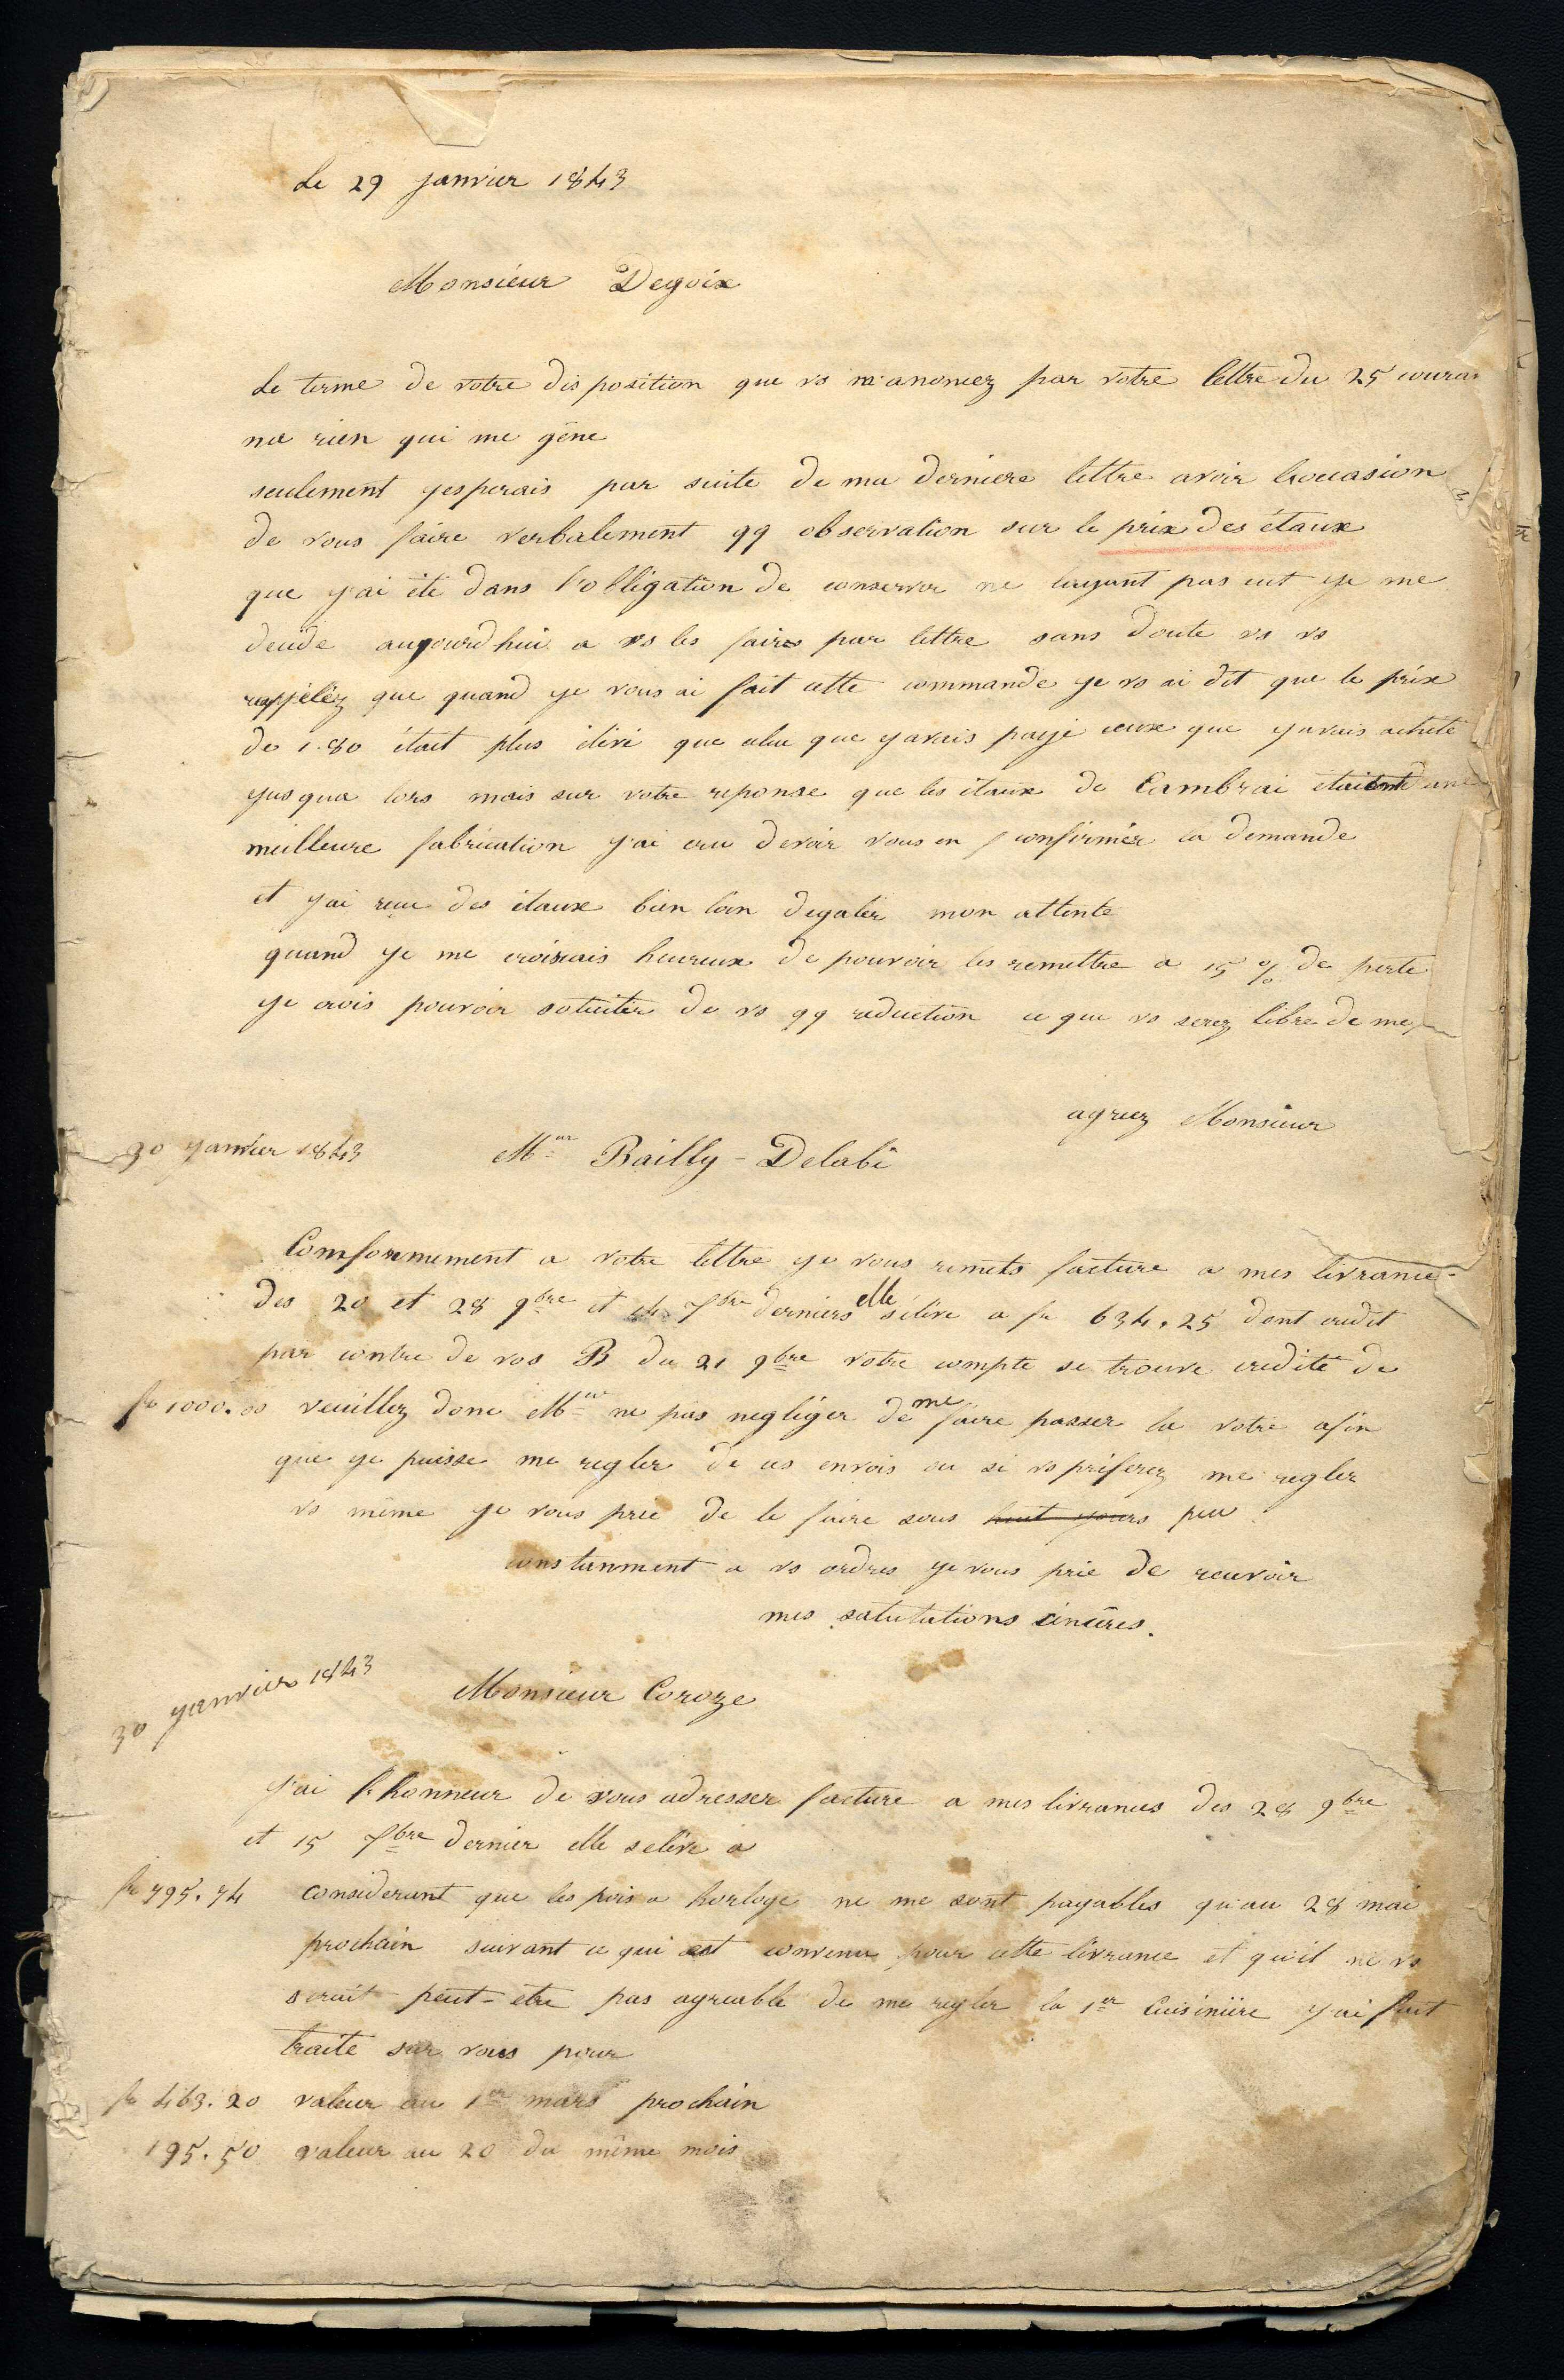 Le 29 janvier 1843
Monsieur Degoix
Le terme de votre disposition que vs m'anoncez par votre lettre du 25 couran
na rien qui me gêne
seulement jesperais par suite de ma derniere lettre avoir l'occasion
de vous faire verbalement qq observation sur le prix des étaux
que j'ai été dans l'obligation de conserver ne layant pas eut je me
decide aujourdhui a vs les faires par lettre sans doute vs vs
rappéléz que quand je vous ai fait cette commande je vs ai dit que le prix
de 1.80 était plus élévé que celui que javais payé ceux que javais acheté
jusqua lors mais sur votre reponse que les étaux de Cambrai étaient dune
meilleure fabrication j'ai cru devoir vous en confirmér la demande
et jai reçu des étaux bien loin dégaler mon attente
quand je me croirais heureux de pouvoir les remettre a 15 % de perte
je crois pouvoir soliciter de vs qq reduction ce que vs serez libre de me
agréez Monsieur
30 janvier 1843
Mr Bailly-Delabi
Comformement a votre lettre je vous remets facture a mes livrances
des 20 et 28 9bre et 14 Xbre derniers elle sélève a fr 634.25 dont crédit
par contre de vos B du 21 9bre votre compte se trouve credité de
fr 1000.00 veuillez donc Mr ne pas negliger de me faire passer la votre afin
que je puisse me regler de ces envois ou si vs préferez me regler
vs même je vous prie de le faire sous huit jours peu
constanment a vs ordres je vous prie de recevoir
mes salutations cincères.
30 janvier 1843
Monsieur Coroze
J'ai l'honneur de vous adresser facture a mes livrances des 28 9bre
et 15 Xbre dernier elle seleve a
fr 795.74 considerant que les pois a horloge ne me sont payables qu'au 28 mai
prochain suivant ce qui est convenu pour cette livrance et qu'il ne vs
serait peut-etre pas agreable de me regler la 1er Cuisinière j'ai fait
traite sur vous pour
fr 463.20 valeur au 1er mars prochain
195.50 valeur au 20 du même mois